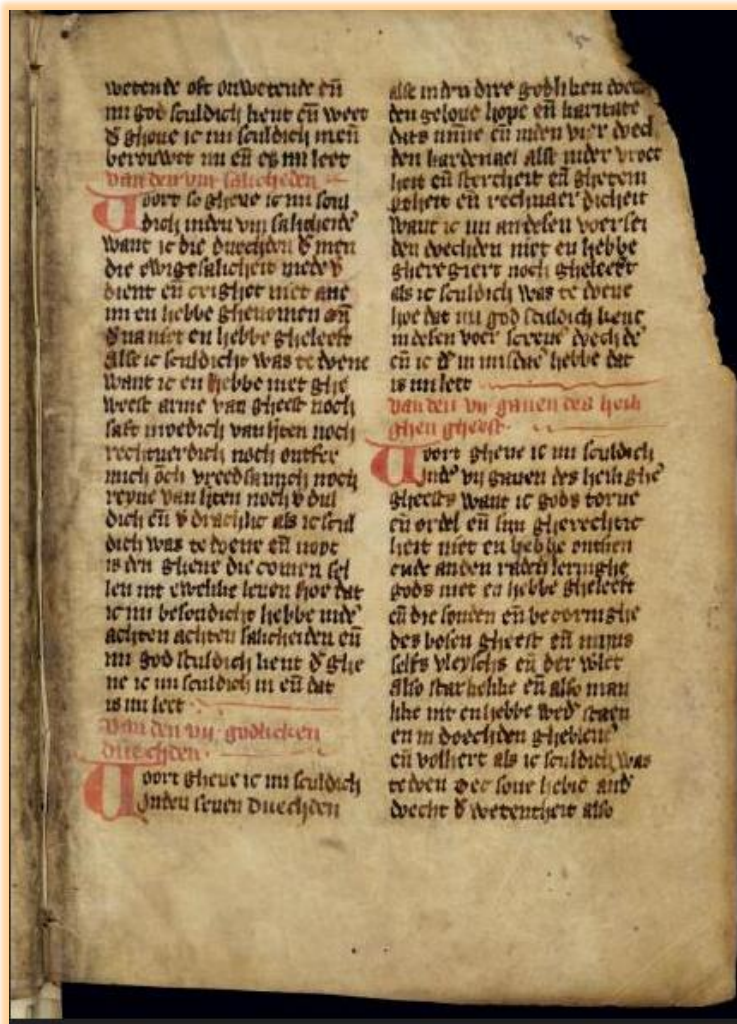 wetende oft onwetende en̄
mi god sculdich kent en̄ weet
d᷒ gheue ic mi sculdich in en̄
berouwet mi en̄ es mi leet
van den viij salicheden
Voort so gheue ic mi scul
dich inden viij salichedē
want ic die duechden d᷒ men
die ewige salicheit mede v᷒
dient en̄ crighet niet ane
mi en hebbe ghenomen en̄
d᷒ na niet en hebbe gheleeft
alse ic sculdich was te doene
want ic en hebbe niet ghe
weest arme van gheest noch
saft moedich van h̓ten noch
rechtuerdich noch ontfer
mich och vreedsamich noch
reyne van h̓ten noch v᷒ dul
dich en̄ v᷒drachlic als ic scul
dich was te doene en̄
is den ghene die comen sel
len int ewelike leuen hoe dat
ic mi besondicht hebbe indē
achten achten salicheiden en̄
mi god sculdich kent d᷒ ghe
ue ic mi sculdich in en̄ dat
is mi leet
van den vij godlicken
duechden
Voort gheue ic mi sculdich
inden seuen duechden
alse inden drie godliken
den geloue hope en̄ karitate
dats minne en̄ inden vier doech
den kardenael alst inder vroet
heit en̄ stercheit en̄ ghetem
ptheit en̄ rechtuaerdicheit
want ic mi an desen voersei
den doechden niet en hebbe
gheregiert noch gheleeft
als ic sculdich was te doene
hoe dat mi god sculdich kent
in desen voer screuē doechdē
en̄ ic d᷒ in misdaē hebbe dat
is mi leet
van den vij gauen des heili
ghen gheest
Voort gheue ic mi sculdich
indē vij gauen des heilighē
gheests want ic gods torne
en̄ ordel en̄ sijn gherechtic
heit niet en hebbe ontsien
ende an den raden leringhe
gods niet en hebbe gheleeft
en̄ die sonden en̄ becoringhe
des bosen gheest en̄ mijns
selfs vleyschs en̄ der
also starkelike en̄ also man
like nit en hebbe wed᷒ staen
en in doechden ghebleuē
en̄ volhert als ic sculdich was
te doen Dec soue hebic
docht d᷒ wetentheit also